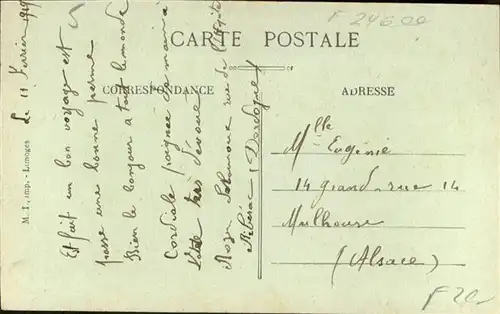 F 24600
CARTE POSTALE
CORRESPONDANCE
ADRESSE
M. I., imp. - Limoges
Le 11 Février 1919
Et fait un bon voyage est
passe une bonne
Bien le bonjour à tout le monde
Cordiale poignée de main a
Votre très dévoué
Roger rue de
Ribérac (Dordogne)
Mlle Eugénie
14 grand-rue 14
Mulhouse
(Alsace)
F 20